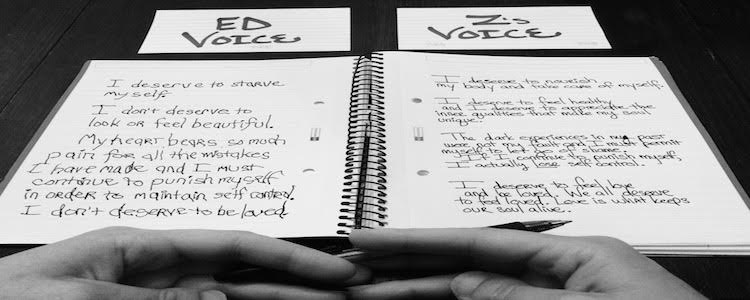 ED
VOICE
Z's
VOICE
I deserve to starve
myself.
I don't deserve to
look or feel beautiful.
My heart bears so much
pain for all the mistakes
I have made and I must
continue to punish myself
in order to maintain self control.
I don't deserve to be loved.
I deserve to nourish
my body and take care of myself.
I deserve to feel healthy
and I deserve to appreciate the
inner qualities that make my soul
unique.
The dark experiences in my past
were not my fault and I must permit
myself to let go of the shame.
If I continue to punish myself,
I actually lose self control.
I deserve to feel love
and be loved. We all deserve
to feel loved. Love is what keeps
our soul alive.